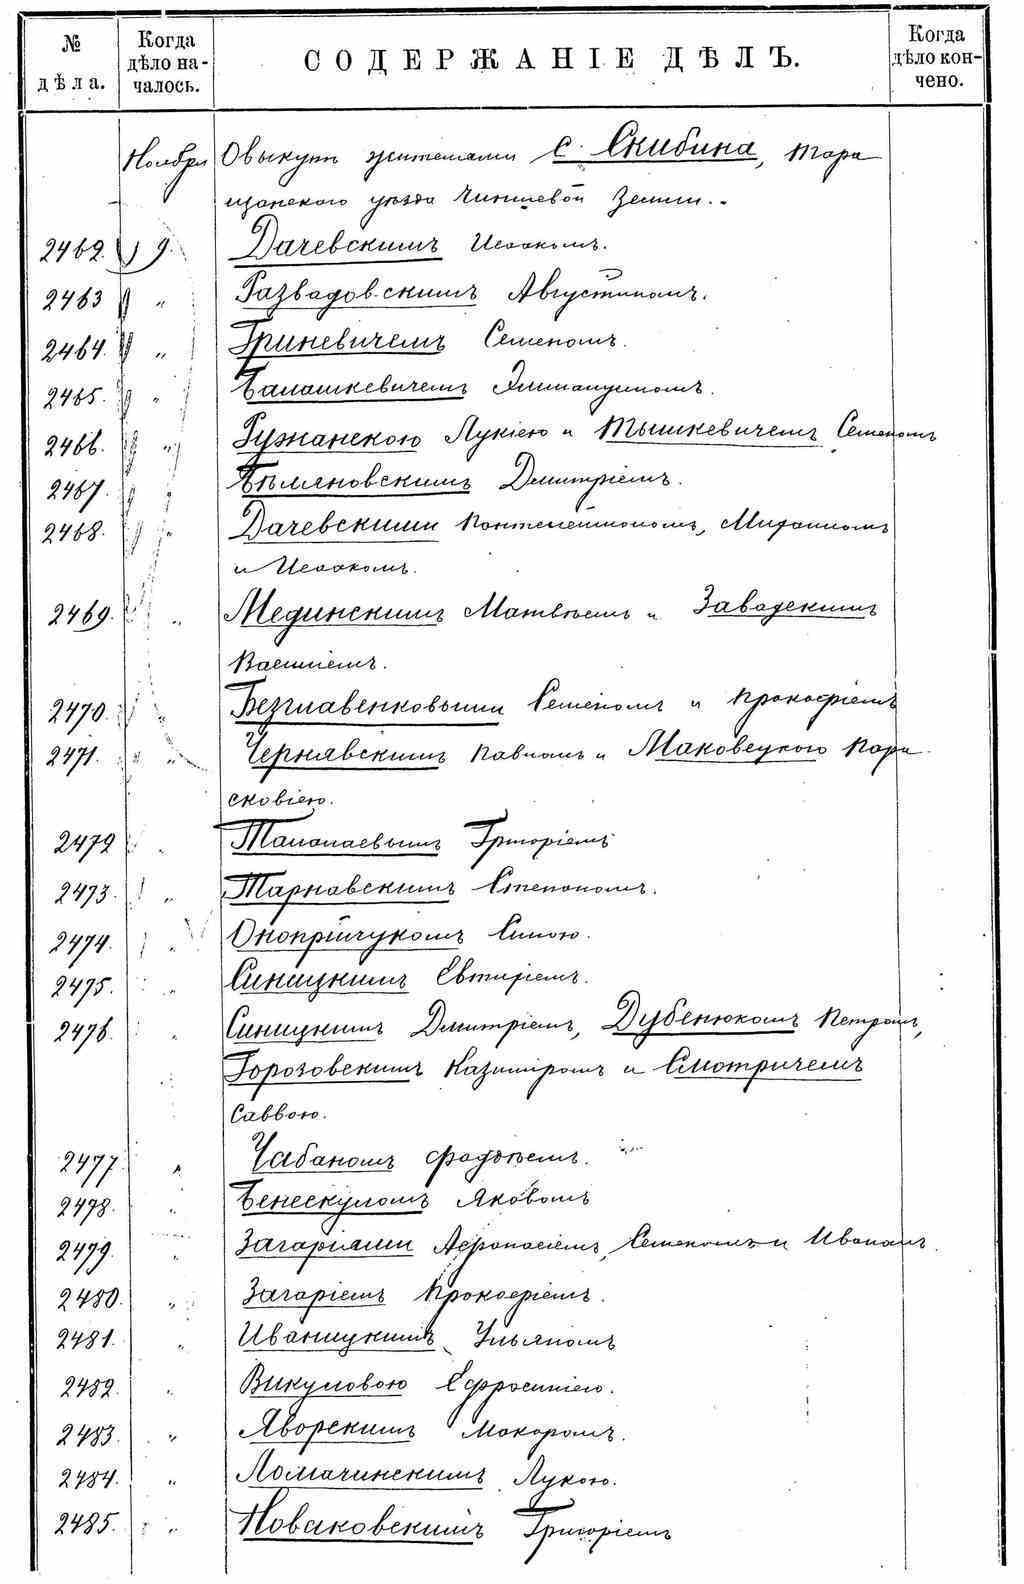 № дѣла. Когда дѣло началось. СОДЕРЖАНІЕ ДѢЛЪ. Когда дѣло кончено.
Ноября О выкупѣ жителями с. Скибина, Тара
щанскаго уѣзда Чиншевой Земли.
2462. 9. Дачевскимъ Исаакомъ.
2463 " Развадовскимъ Августиномъ.
2464. " Гриневичемъ Семеномъ.
2465. " Балашкевичемъ
2466. " Ружанскою Лукіею и Тышкевичемъ Семеномъ
2467. " Бѣляновскимъ Дмитріемъ.
2468. " Дачевскими Пантелеймономъ, Мирономъ
и Исаакомъ.
2469. " Мединскимъ Матвѣемъ и Завадскимъ
Василіемъ.
2470. " Безглавенковыми Семеномъ и Прокофіемъ
2471. " Чернявскимъ Павломъ и Маковецкою Пара
сковіею.
2472 " Талалаевымъ Григоріемъ
2473. " Тарнавскимъ Степаномъ.
2474. " Оноприйчукомъ Силою.
2475. " Синицкимъ Евтихіемъ.
2476. " Синицкимъ Дмитріемъ, Дубенюкомъ Петромъ,
Горозовскимъ Казиміромъ и Смотричемъ
Саввою.
2477. " Чабаномъ Фадѣемъ.
2478. " Бенескуломъ Яковомъ
2479. " Загаріями Афанасіемъ, Семеномъ и Иваномъ.
2480. " Загаріемъ Прокофіемъ.
2481. " Иваницкимъ Ульяномъ
2482. " Викуловою Ефросиніею.
2483. " Яворскимъ Макаромъ.
2484. " Ломачинскимъ Лукою.
2485. " Новаковскимъ Григоріемъ